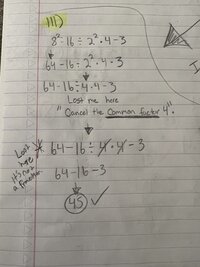 111)
8² - 16 ÷ 2² · 4 - 3
64 - 16 ÷ 2² · 4 · 3
64 - 16 ÷ 4 · 4 - 3
Lost me here
"Cancel the Common factor 4".
Lost here It's not a fraction
64 - 16 ÷ 4 · 4 - 3
64 - 16 - 3
45 ✓